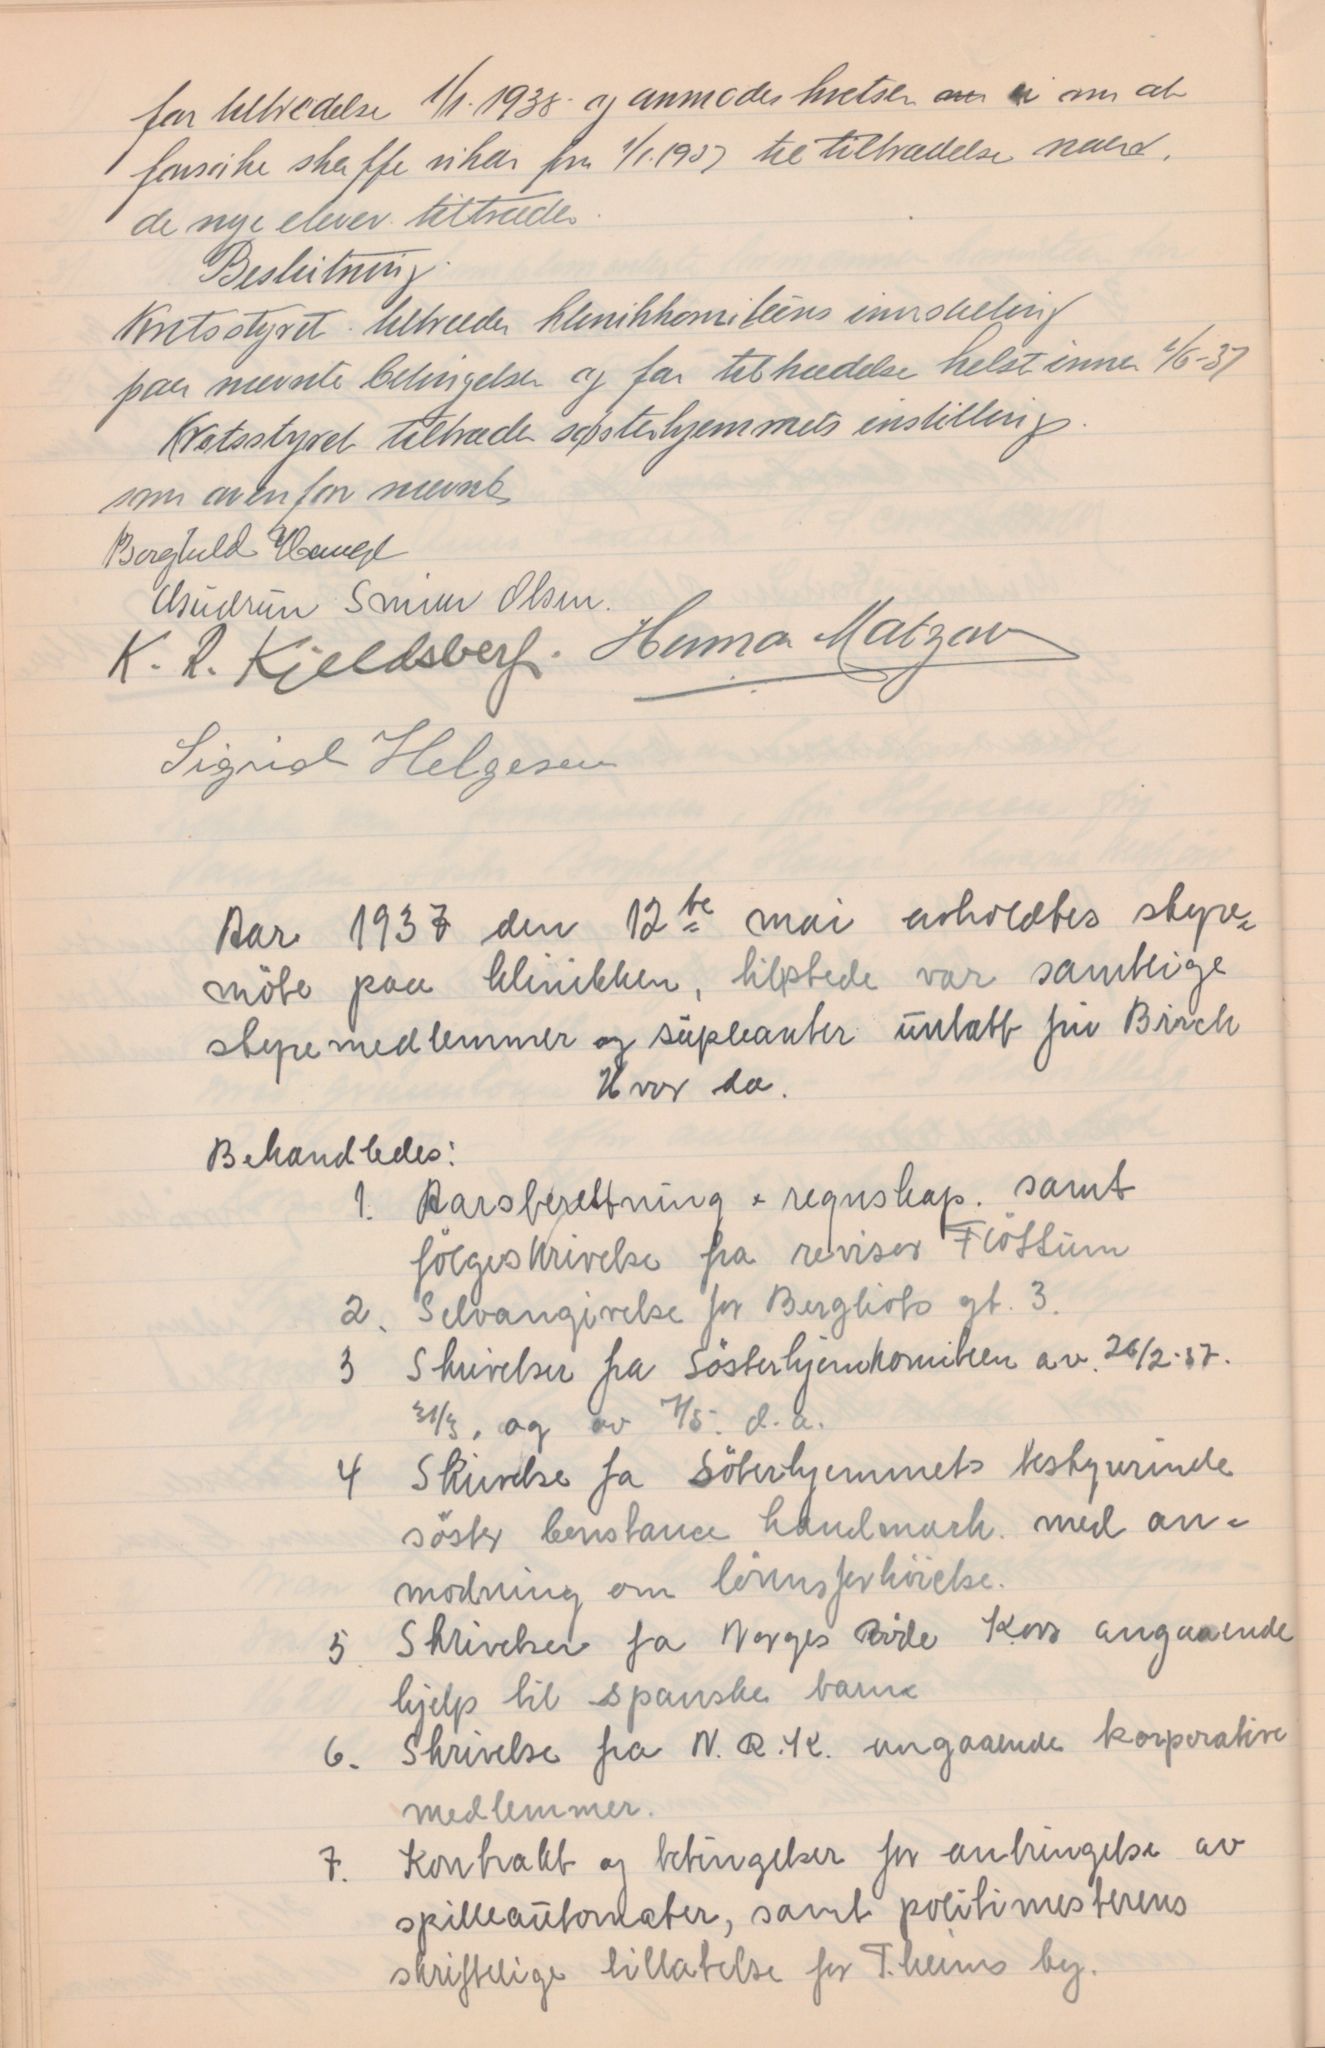 for tiltrædelse 1/1. 1938. og anmodes kretsen om at
forsøke skaffe vikar fra 1/1. 1937 til tiltrædelse
de nye elever tiltræder.
Beslutning.
Kretsstyret tiltræder klinikkomiteens innstilling
paa nævnte betingelser og for tiltrædelse helst innen 1/6-37
Kretsstyret tiltræder søsterhjemmets instilling
som ovenfor nævnt
Borghild Haugl
Gudrun Olsen.
K. R. Kjeldsberg. Hanna Matzow
Sigrid Helgesen
Aar 1937 den 12te mai avholdtes styre=
möte paa klinikken, tilstede var samtlige
styremedlemmer og supleanter untatt fru Birch
Hvor da.
Behandledes:
1. Aarsberettning + regnskap. samt
fölgeskrivelse fra revisor Flöttum
2. Selvangivelse for Bergliots gt. 3.
3 Skrivelser fra Sösterhjemkomiteen av. 26/2-37.
31/3, og av 7/5. d.a.
4 Skrivelse fra Sösterhjemmets bestyrerinde
söster Constance handmark. med an=
modning om lönnsforhöielse.
5 Skrivelser fra Norges Röde Kors angaaende
hjelp til spanske barn
6. Skrivelse fra N.R.K. angaaende korporative
medlemmer.
7. Kontrakt og betingelser for anbringelse av
spilleautomater, samt politimesterens
skriftelige tillatelse for T.heims by.